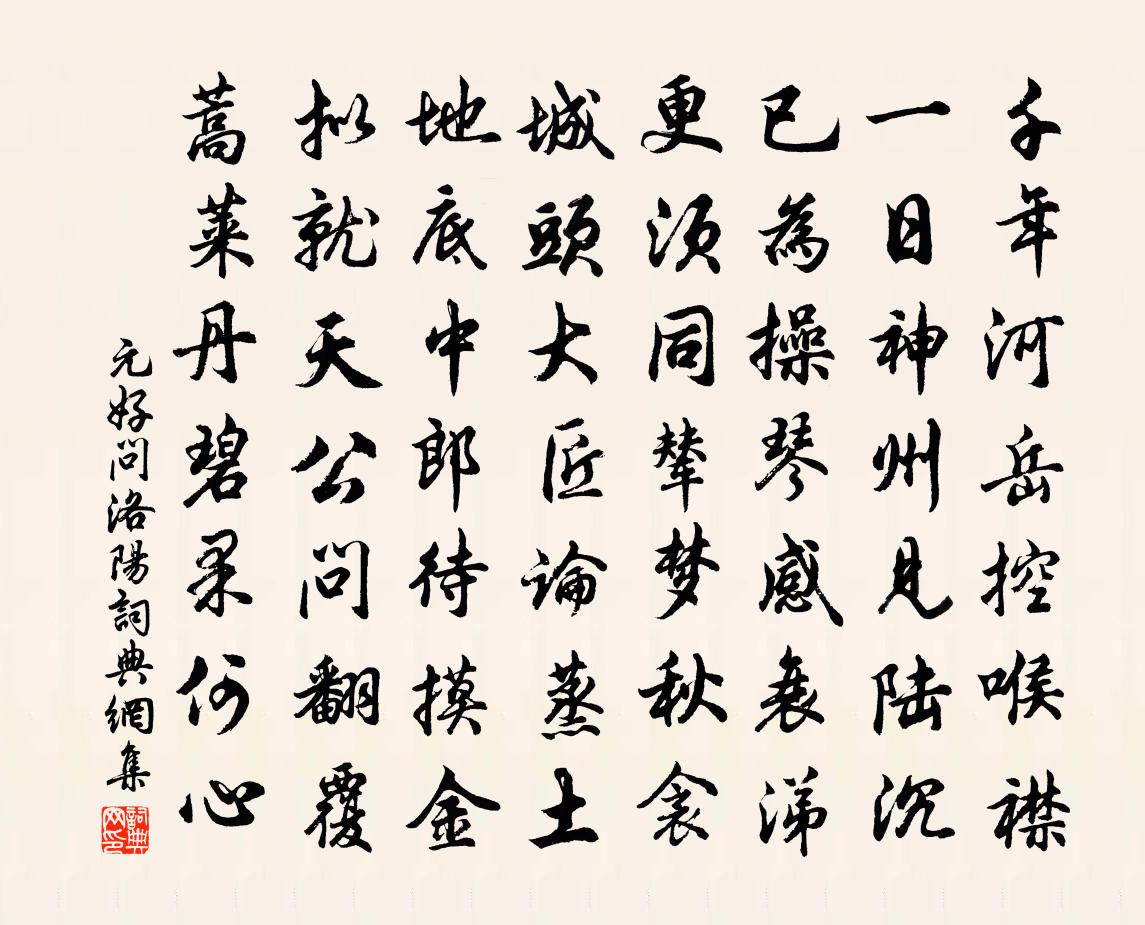 千年河岳控喉襟
一日神州见陆沉
已為操琴感衰涕
更须同辇梦秋衾
城頭大匠論蒸土
地底中郎待摸金
拟就天公問翻覆
蒿莱丹碧果何心
元好問洛陽詞典網集
詞典网印